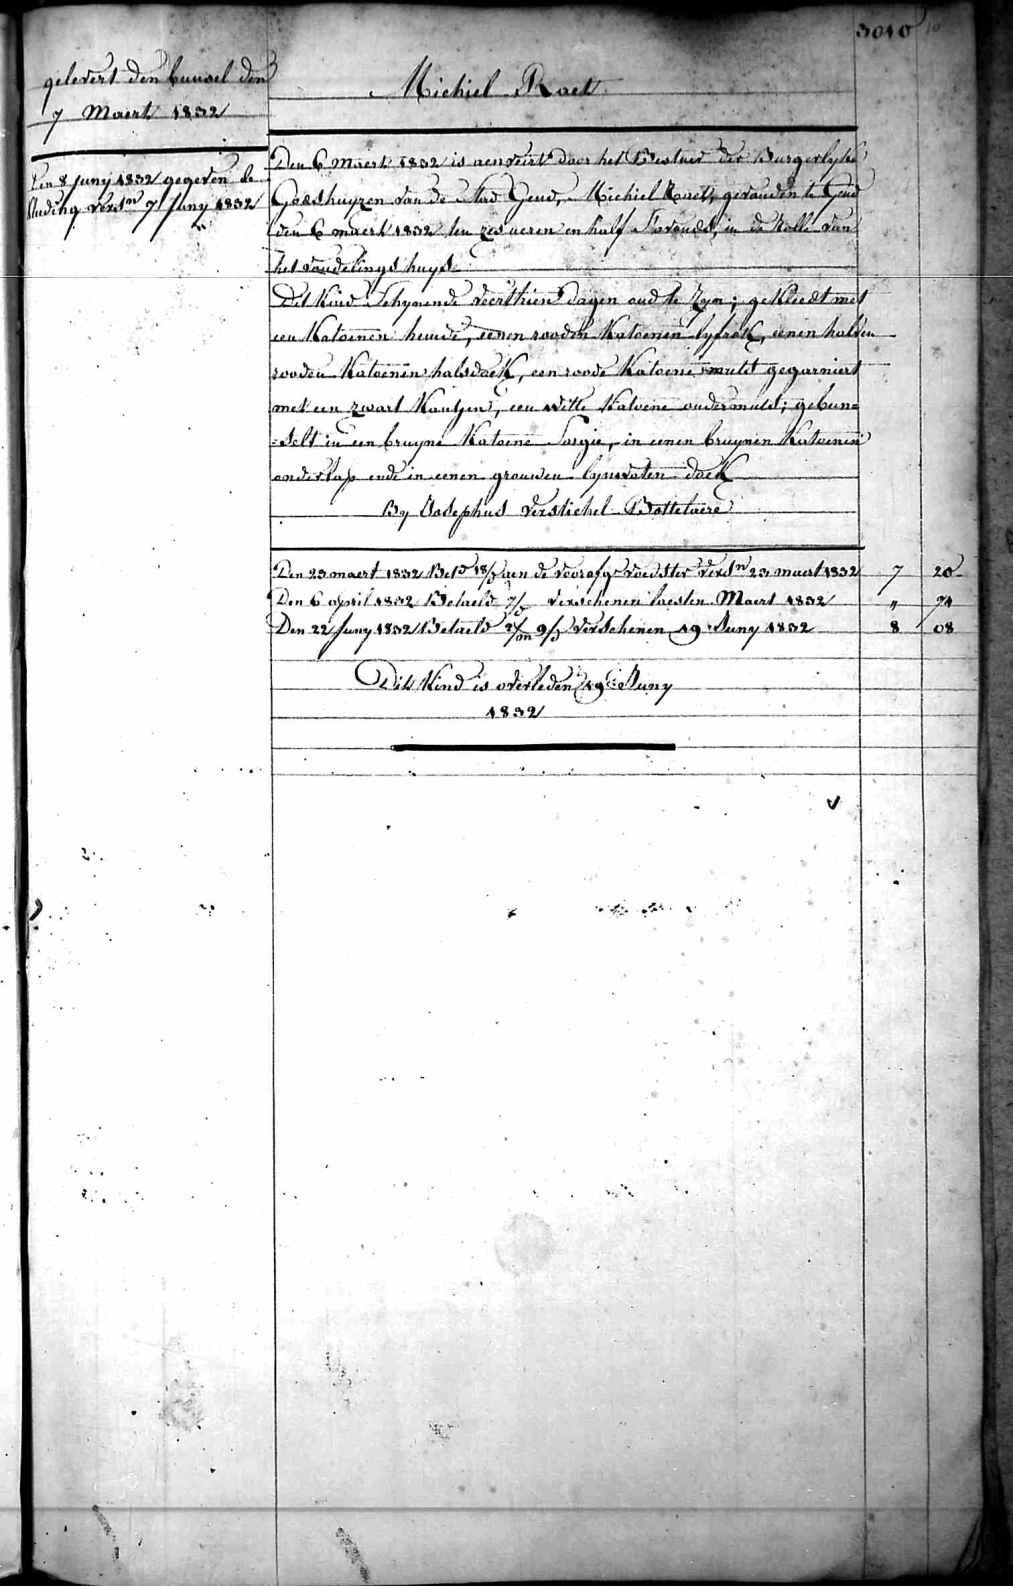 3010
gelevert den bunsel den
7 Maert 1832
Den 8 Juny 1832 gegeven de
kleeding versn 7 Juny 1832
Michiel Raet
Den 6 Maert 1832 is aenveirt door het Bestuer der Burgerlyke
Godshuyzen van de Stad Gend, Michiel Raet, gevonden te Gend
den 6 maert 1832 ten zes ueren en half s'avonds, in de Rolle van
het vondelings huys
Dit Kind schynende veerthien dagen oud te zyn; gekleedt met
een Katoenen hemde, eenen rooden Katoenen lyfrok, eenen halven
rooden Katoenen halsdoek, een roode Katoene muts gegarniert
met een zwart Kantjen, een witte Katoene ondermuts; gebun=
=selt in een bruyne Katoene Sargie, in eenen bruynen Katoenen
onderlap ende in eenen grouwen lynwaten doek
By Josephus Verstichel Bottelaere
Den 23 maert 1832 Bet. 18/ aen de voorafge voedster versn 23 maert 1832 7 20
Den 6 april 1832 Betaeld 7/ verschenen laesten Maert 1832 " 74
Den 22 Juny 1832 Betaeld 2/m 9/ verschenen 19 Juny 1832 8 08
Dit Kind is overleden 19 Juny
1832